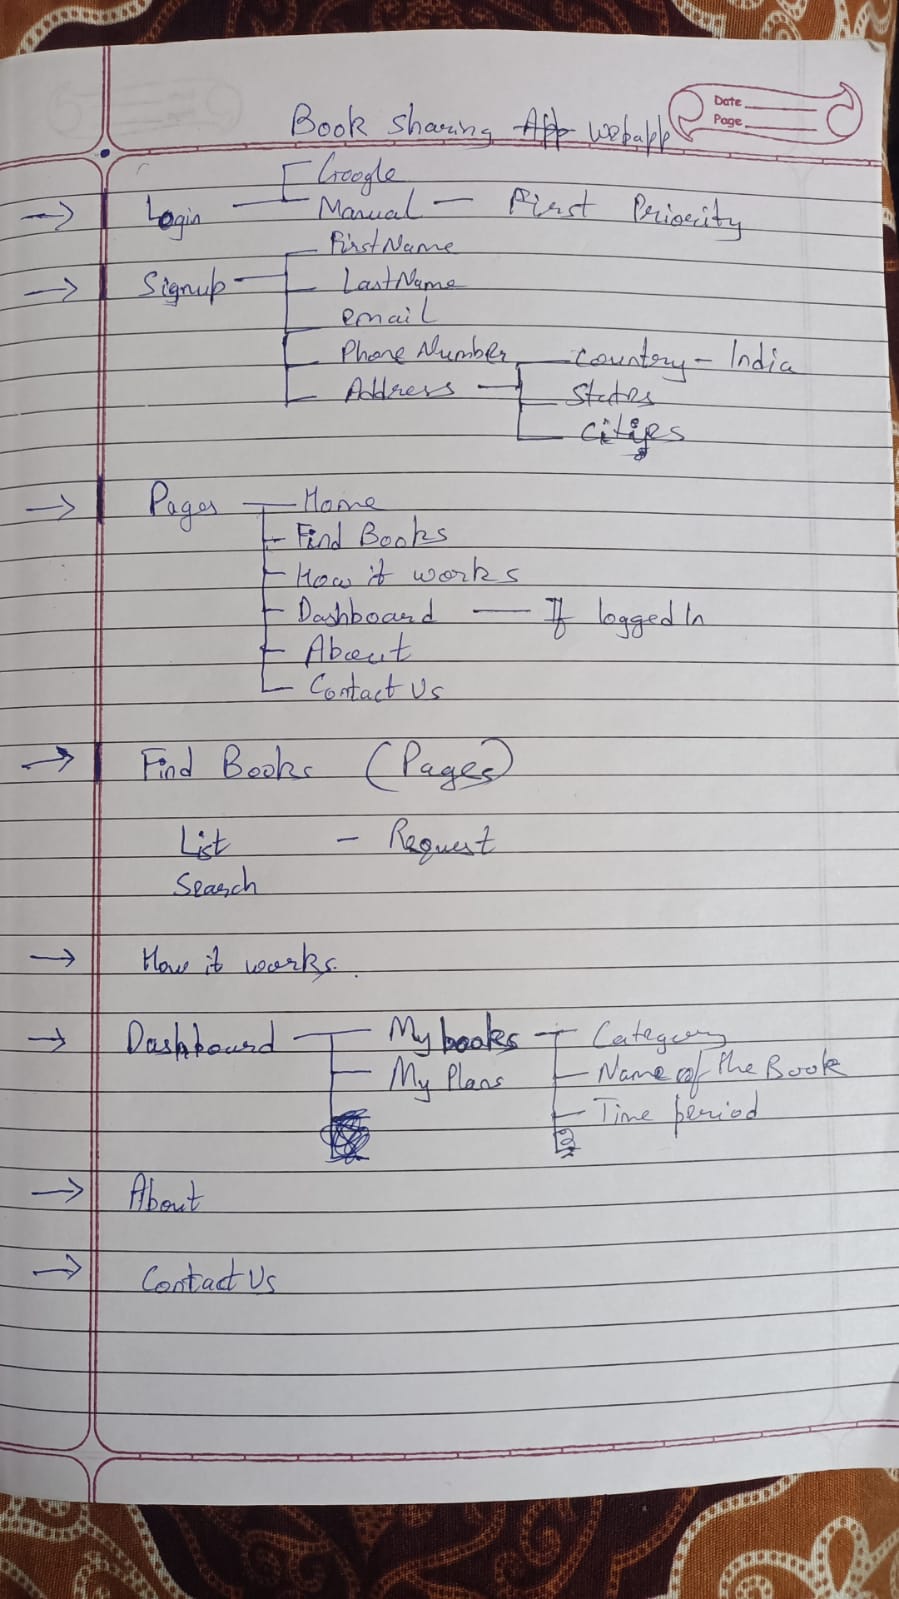 Date
Page
Book sharing App Webapp
Google
Login Manual - First Priority
FirstName
Signup LastName
email
Phone Number Country - India
Address States
Cities
Pages Home
Find Books
How it works
Dashboard — If logged In
About
Contact Us
Find Books (Pages)
List - Request
Search
How it works.
Dashboard My books Category
My Plans Name of the Book
Time period
About
Contact Us